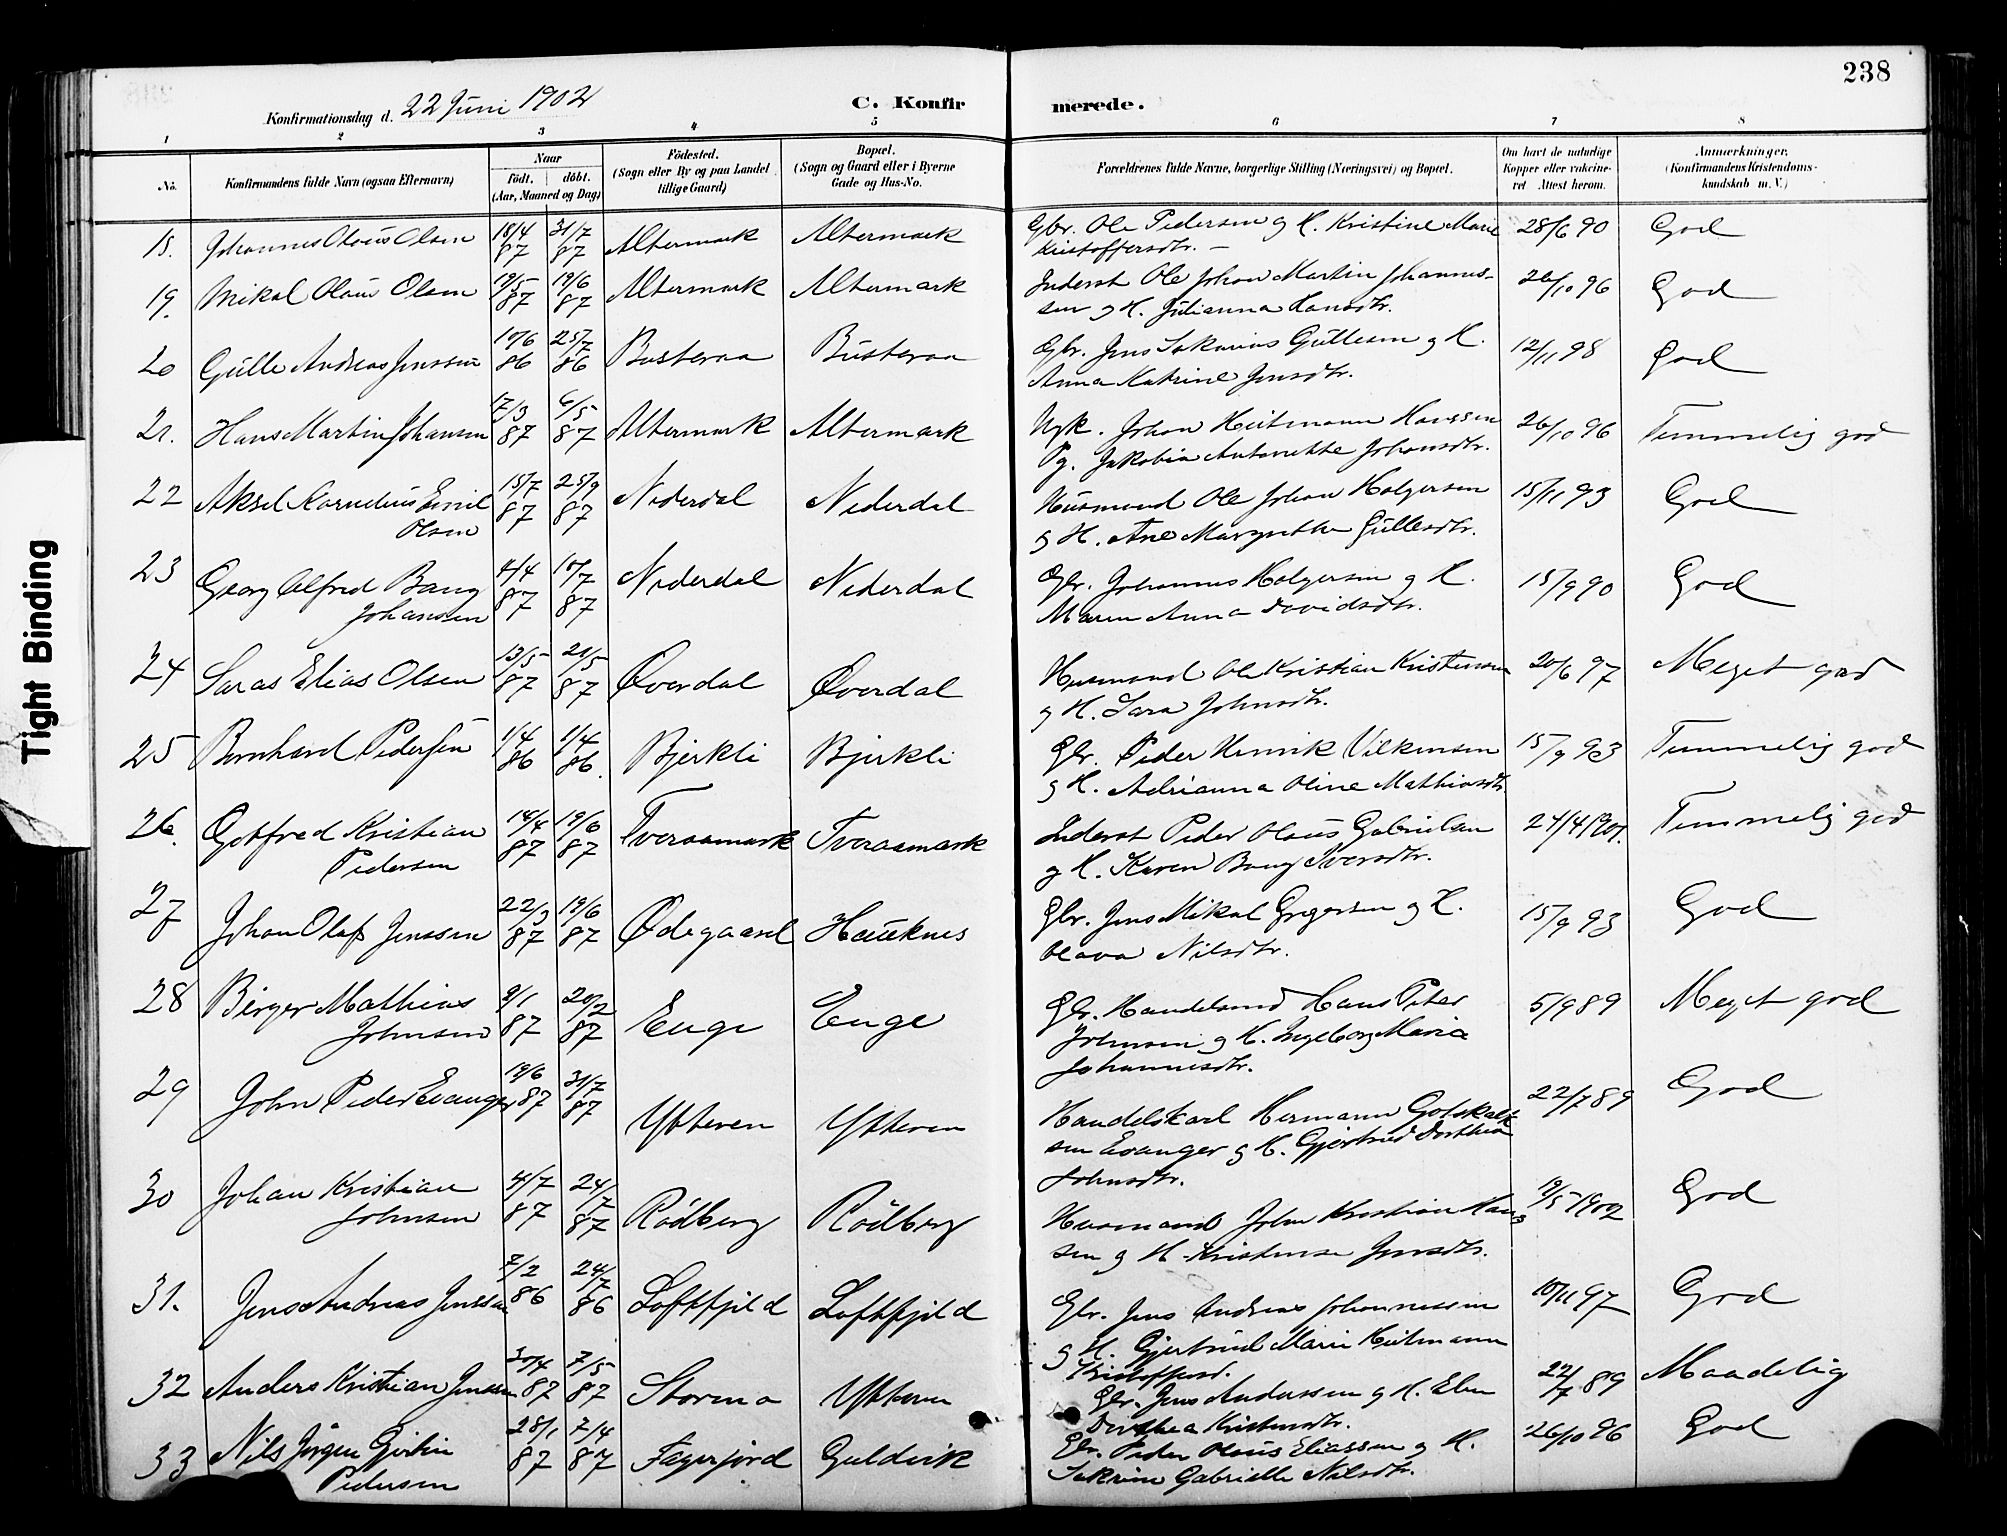 238
Konfirmationsdag d. 22 Juni 1902
C. Konfir merede.
1 2 3 4 5 6 7 8
No. Konfirmandens fulde Navn (ogsaa Efternavn) Naar født. døbt. (Aar, Maaned og Dag) Fødested. (Sogn eller By og paa Landet tillige Gaard) Bopæl. (Sogn og Gaard eller i Byerne Gade og Hus-No. Forældrenes fulde Navne, borgerlige Stilling (Næringsvei) og Bopæl. Om havt de naturlige Kopper eller vakcineret. Attest herom. Anmærkninger. (Konfirmandens Kristendomskundskab m. V.)
18. Johannes Olaus Olsen 18/4 87 31/7 87 Altermark Altermark Gbr. Ole Pedersen og H. Kristine Marie 28/6 90 God
Kristoffersdtr. –
19. Mikal Olaus Olsen 19/5 87 19/6 87 Altermark Altermark Inderst Ole Johan Martin Johannes- 26/10 96 God
sen og H. Julianna Hansdtr.
20 Gulle Andreas Jenssen 10/6 86 25/7 86 Busteraa Busteraa Gbr. Jens Sakarias Gullesen og H. 12/11 98 God
Anna Katrine Jensdtr.
21. Hans Martin Johansen 17/3 87 6/5 87 Altermark Altermark Ugk. Johan Heitmann Hanssen 26/10 96 Temmelig god
Pg. Jakobia Antonette Johansdtr.
22 Aksel Kornelius Emil 15/7 87 25/9 87 Nederdal Nederdal Husmand Ole Johan Holgersen 15/11 93 God
Olsen og H. Ane Margrethe Gullesdtr.
23 Georg Alfred Bang 4/4 87 10/7 87 Nederdal Nederdal Gbr. Johannes Holgersen og H. 15/9 90 God
Johansen Maren Anna Davidsdtr.
24 Saras Elias Olsen 13/5 87 21/5 87 Øverdal Øverdal Husmand Ole Kristian Kristensen 20/6 97 Meget god
og H. Sara Johnsdtr.
25 Bernhard Pedersen 1/4 86 1/4 86. Bjerkli Bjerkli Gbr. Peder Henrik Vilkensen 15/9 93 Temmelig god
og H. Adrianna Oline Mathiasdtr.
26. Gotfred Kristian 18/4 87 19/6 87 Tveraamark Tveraamark Inderst Peder Olaus Gabrielsen 24/4 1901. Temmelig god
Pedersen og H. Karen Bang Iversdtr.
27 Johan Olaf Jenssen 22/3 87 19/6 87 Ødegaard Hauknes Gbr. Jens Mikal Gregersen og H. 15/9 93 God
Olava Nilsdtr.
28 Birger Mathias 9/1 87 20/2 87 Enge Enge Gbr. Handelsmd Hans Peter 5/9 89 Meget god
Johnsen Johnsen og H. Ingeborg Maria
Johannesdtr.
29 John Peder Evanger 19/6 87 31/7 87 Ytteren Ytteren Handelskarl Hermann Gotskalk- 22/7 89 God
sen Evanger og H. Gjertrud Dorthea
Johnsdtr.
30 Johan Kristian 4/7 87 24/7 87 Rødberg Rødberg Husmand John Kristian Han 19/5 1902 God
Johnsen sen og H. Kristense Jensdtr.
31. Jens Andreas Jenssen 7/2 86 24/7 86 Loftfjeld Loftfjeld Gbr. Jens Andreas Johannessen 10/11 97 God
og H. Gjertrud Marie Heitmann
Kristoffersd.
32 Anders Kristian Jenssen 30/4 87 7/5 87 Storma Ytteren Gbr. Jens Anderssen og H. Elen 22/7 89 Maadelig
Dorthea Kristensdtr.
33 Nils Jørgen Gjertin 28/1 87 7/4 87 Fagerjord Guldvik Gbr. Peder Olaus Eliassen og H. 26/10 96 God
Pedersen Sakrine Gabrielle Nilsdtr.
Tight Binding